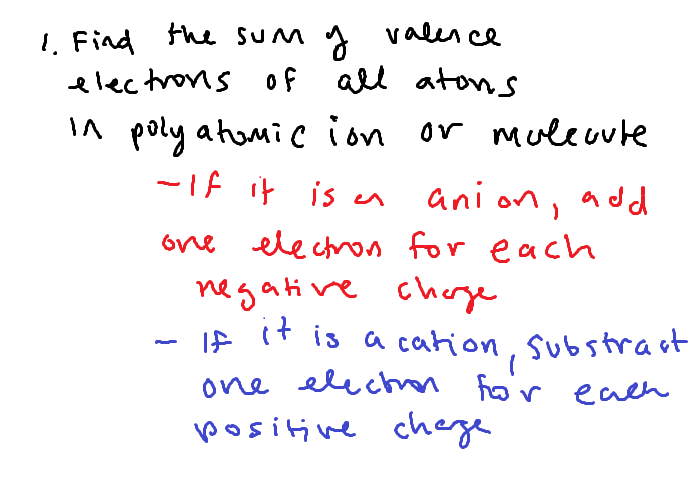 1. Find the sum of valence
electrons of all atoms
in polyatomic ion or molecule
- If it is an anion, add
one electron for each
negative charge
- If it is a cation, substract
one electron for each
positive charge